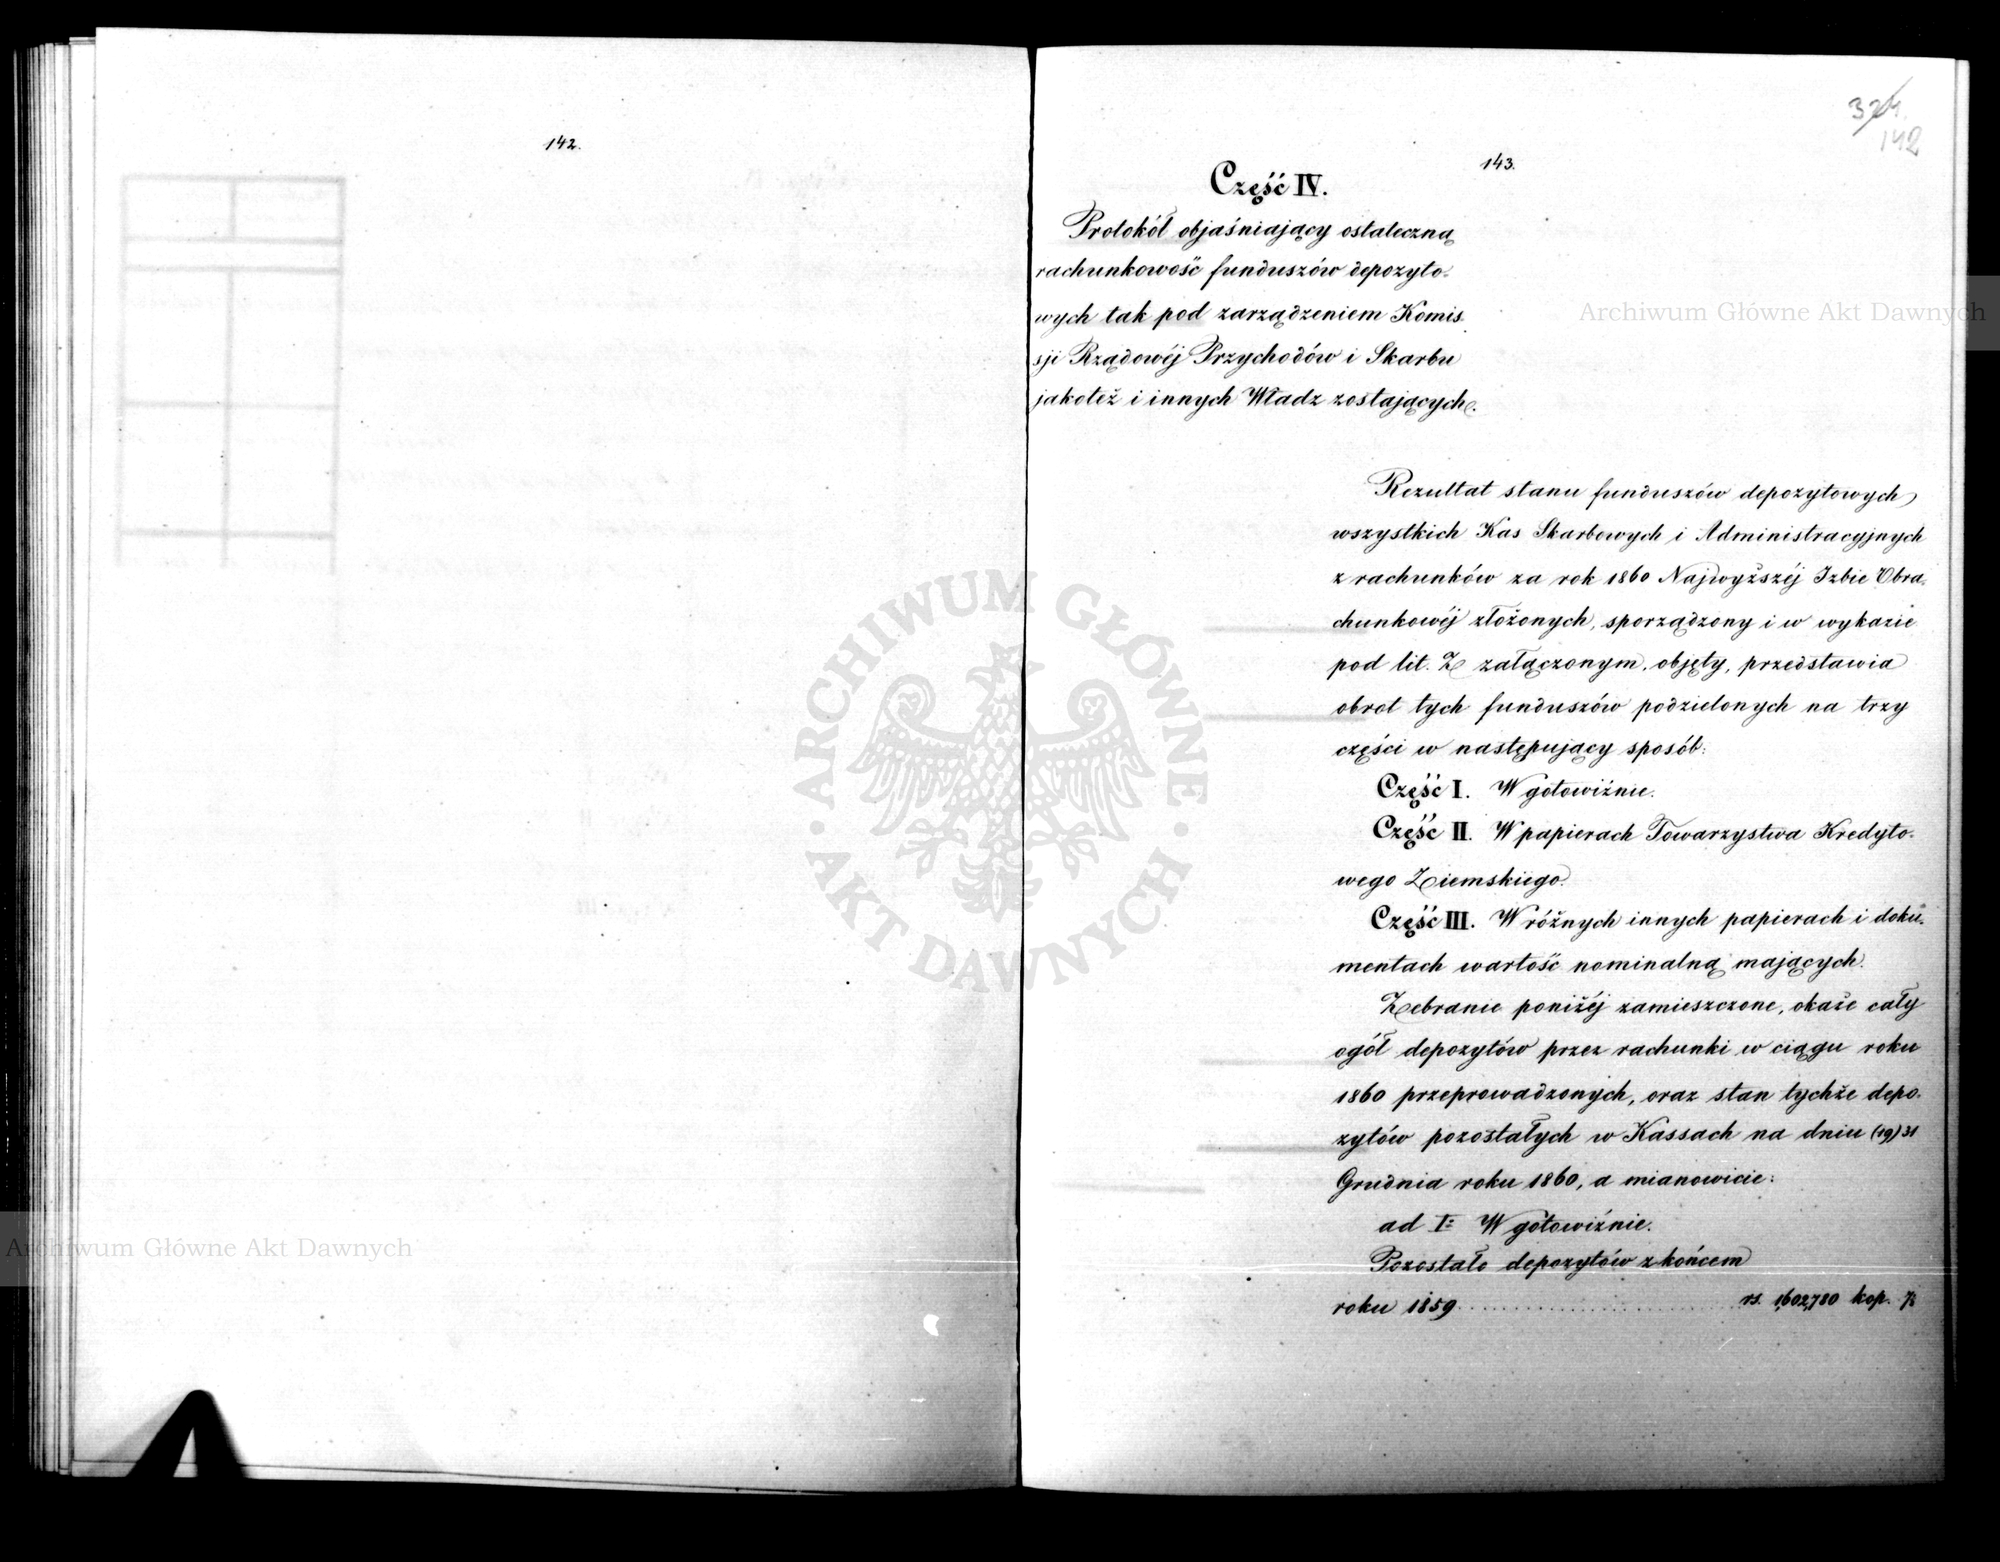 142.
321.
142
143.
Część IV.
Protokół objaśniający ostateczną
rachunkowość funduszów depozyto-
wych tak pod zarządzeniem Komis
sji Rządowéj Przychodów i Skarbu
jakoteż i innych Władz zostających.
Rezultat stanu funduszów depozytowych
wszystkich Kas Skarbowych i Administracyjnych
z rachunków za rok 1860 Najwyższéj Izbie Obra-
chunkowéj złożonych, sporządzony i w wykazie
pod lit. Z załączonym, objęty, przedstawia
obrot tych funduszów podzielonych na trzy
części w następujący sposób:
Część I. W gotowiźnie.
Część II. W papierach Towarzystwa Kredyto-
wego Ziemskiego.
Część III. W różnych innych papierach i doku-
mentach wartość nominalną mających.
Zebranie poniżéj zamieszczone, okaże cały
ogół depozytów przez rachunki w ciągu roku
1860 przeprowadzonych, oraz stan tychże depo-
zytów pozostałych w Kassach na dniu (19) 31
Grudnia roku 1860, a mianowicie:
ad I: W gotowiźnie.
Pozostało depozytów z końcem
roku 1859 rs. 1,602,780 kop.
Archiwum Główne Akt Dawnych
ARCHIWUM GŁÓWNE
AKT DAWNYCH
Archiwum Główne Akt Dawnych